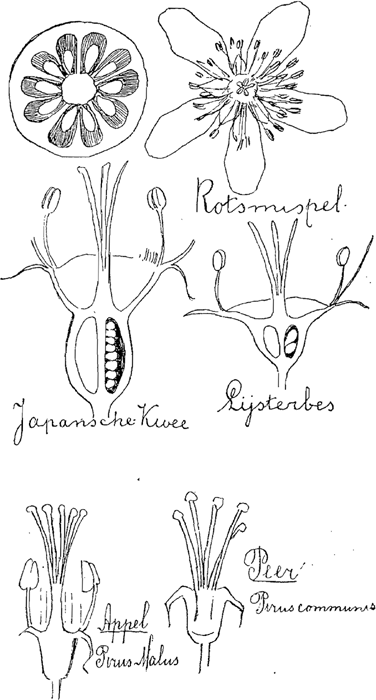 Rotsmispel.
Japansche Kwee
Lijsterbes
Appel
Pirus Malus
Peer
Pirus communis